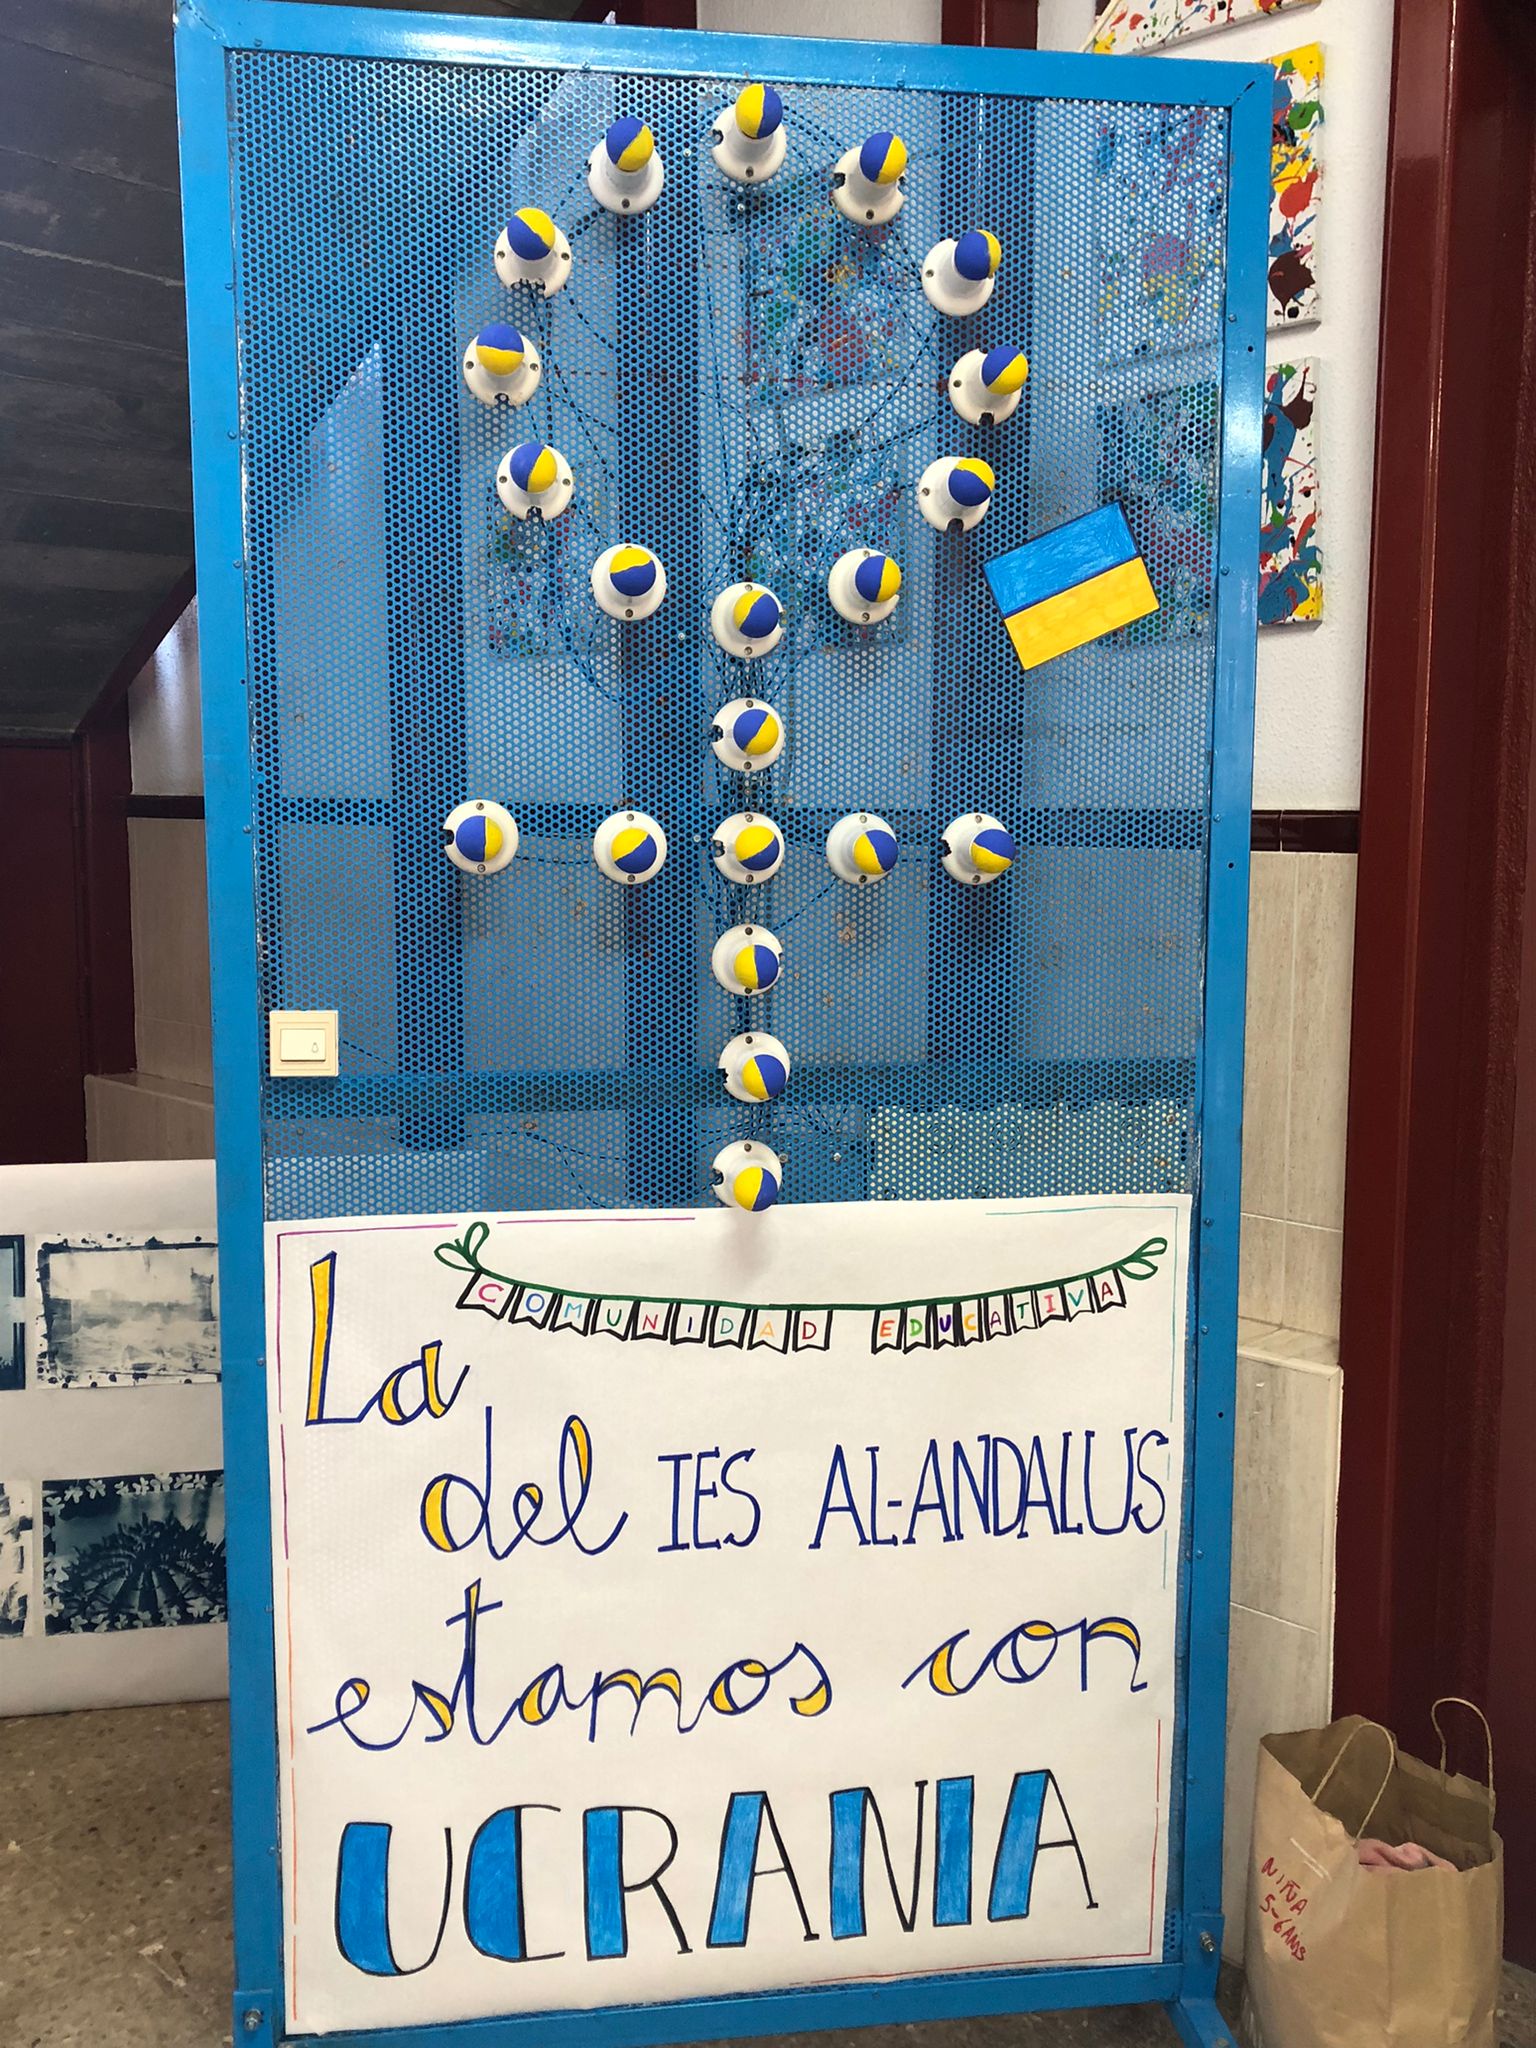 COMUNIDAD EDUCATIVA
La
del IES AL-ANDALUS
estamos con
UCRANIA
NIÑA
5-6 AÑOS